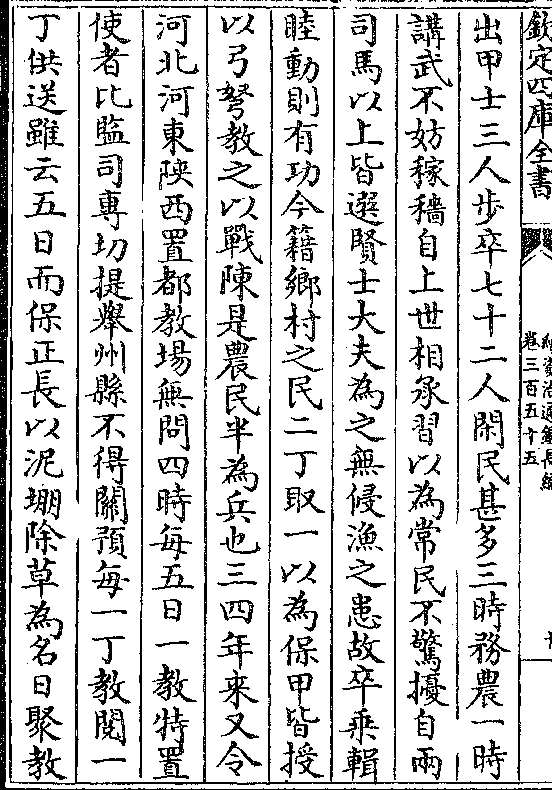 欽定四庫全書
續資治通鑑長編
卷三百五十五
出甲士三人步卒七十二人閑民甚多三時務農一時
講武不妨稼穡自上世相承習以為常民不驚擾自兩
司馬以上皆選賢士大夫為之無侵漁之患故卒乘輯
睦動則有功今籍鄉村之民二丁取一以為保甲皆授
以弓弩教之以戰陳是農民半為兵也三四年來又令
河北河東陜西置都教場無問四時每五日一教特置
使者比監司專切提舉州縣不得關預每一丁教閱一
丁供送雖云五日而保正長以泥堋除草為名日聚教